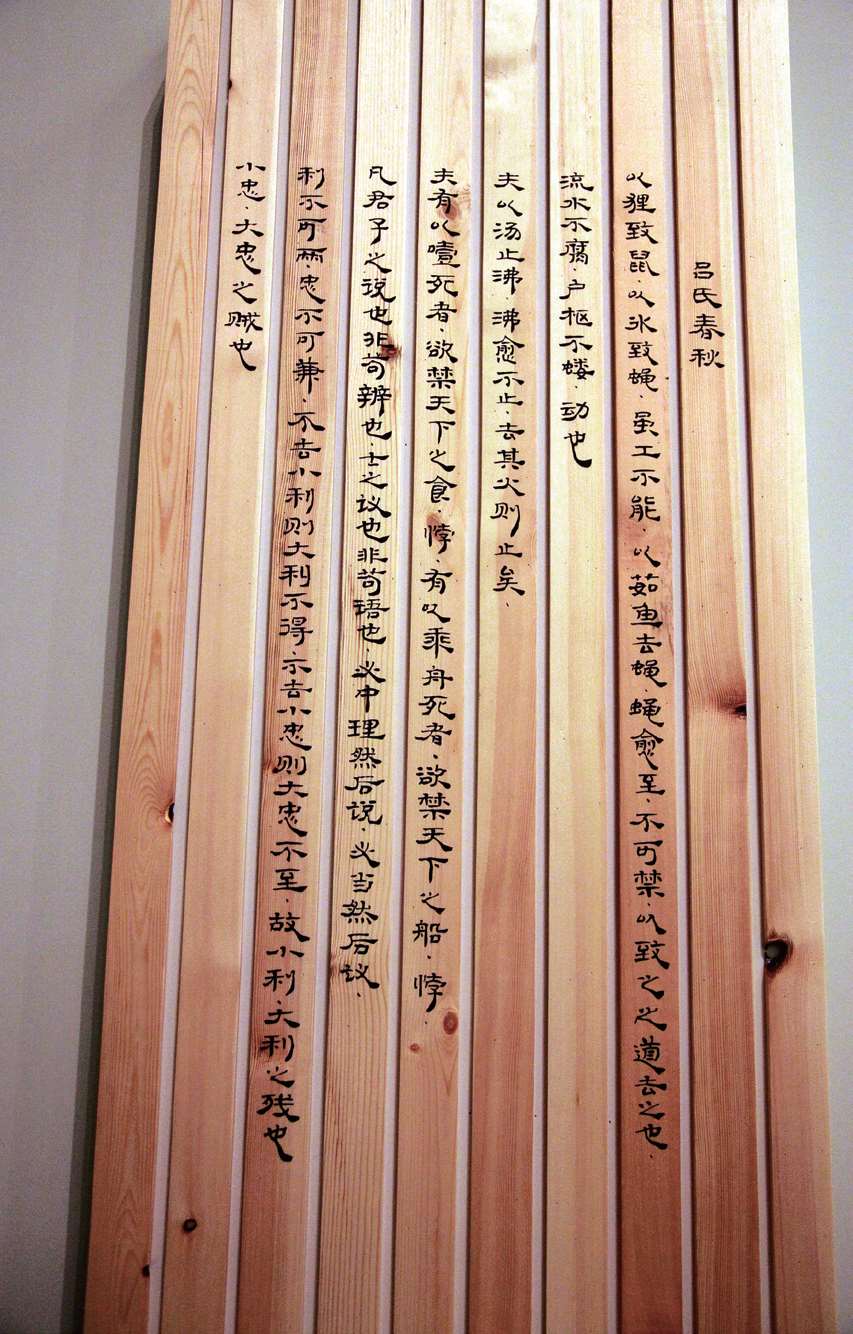 吕氏春秋
以狸致鼠.以冰致蝇.虽工不能.以茹鱼去蝇.蝇愈至.不可禁.以致之之道去之也.
流水不腐.户枢不蝼.动也
夫以汤止沸.沸愈不止.去其火则止矣.
夫有以噎死者.欲禁天下之食.悖.有以乘舟死者.欲禁天下之船.悖.
凡君子之说也非苟辨也.士之议也非苟语也.必中理然后说.必当然后议.
利不可两.忠不可兼.不去小利则大利不得.不去小忠则大忠不至.故小利.大利之残也
小忠.大忠之贼也